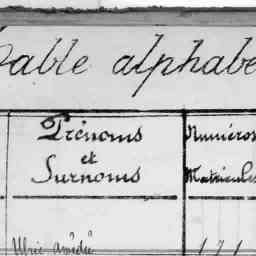 Table alphabé
Prénoms
et
Surnoms
Numéros
Matricules
Ulric Amédée
171